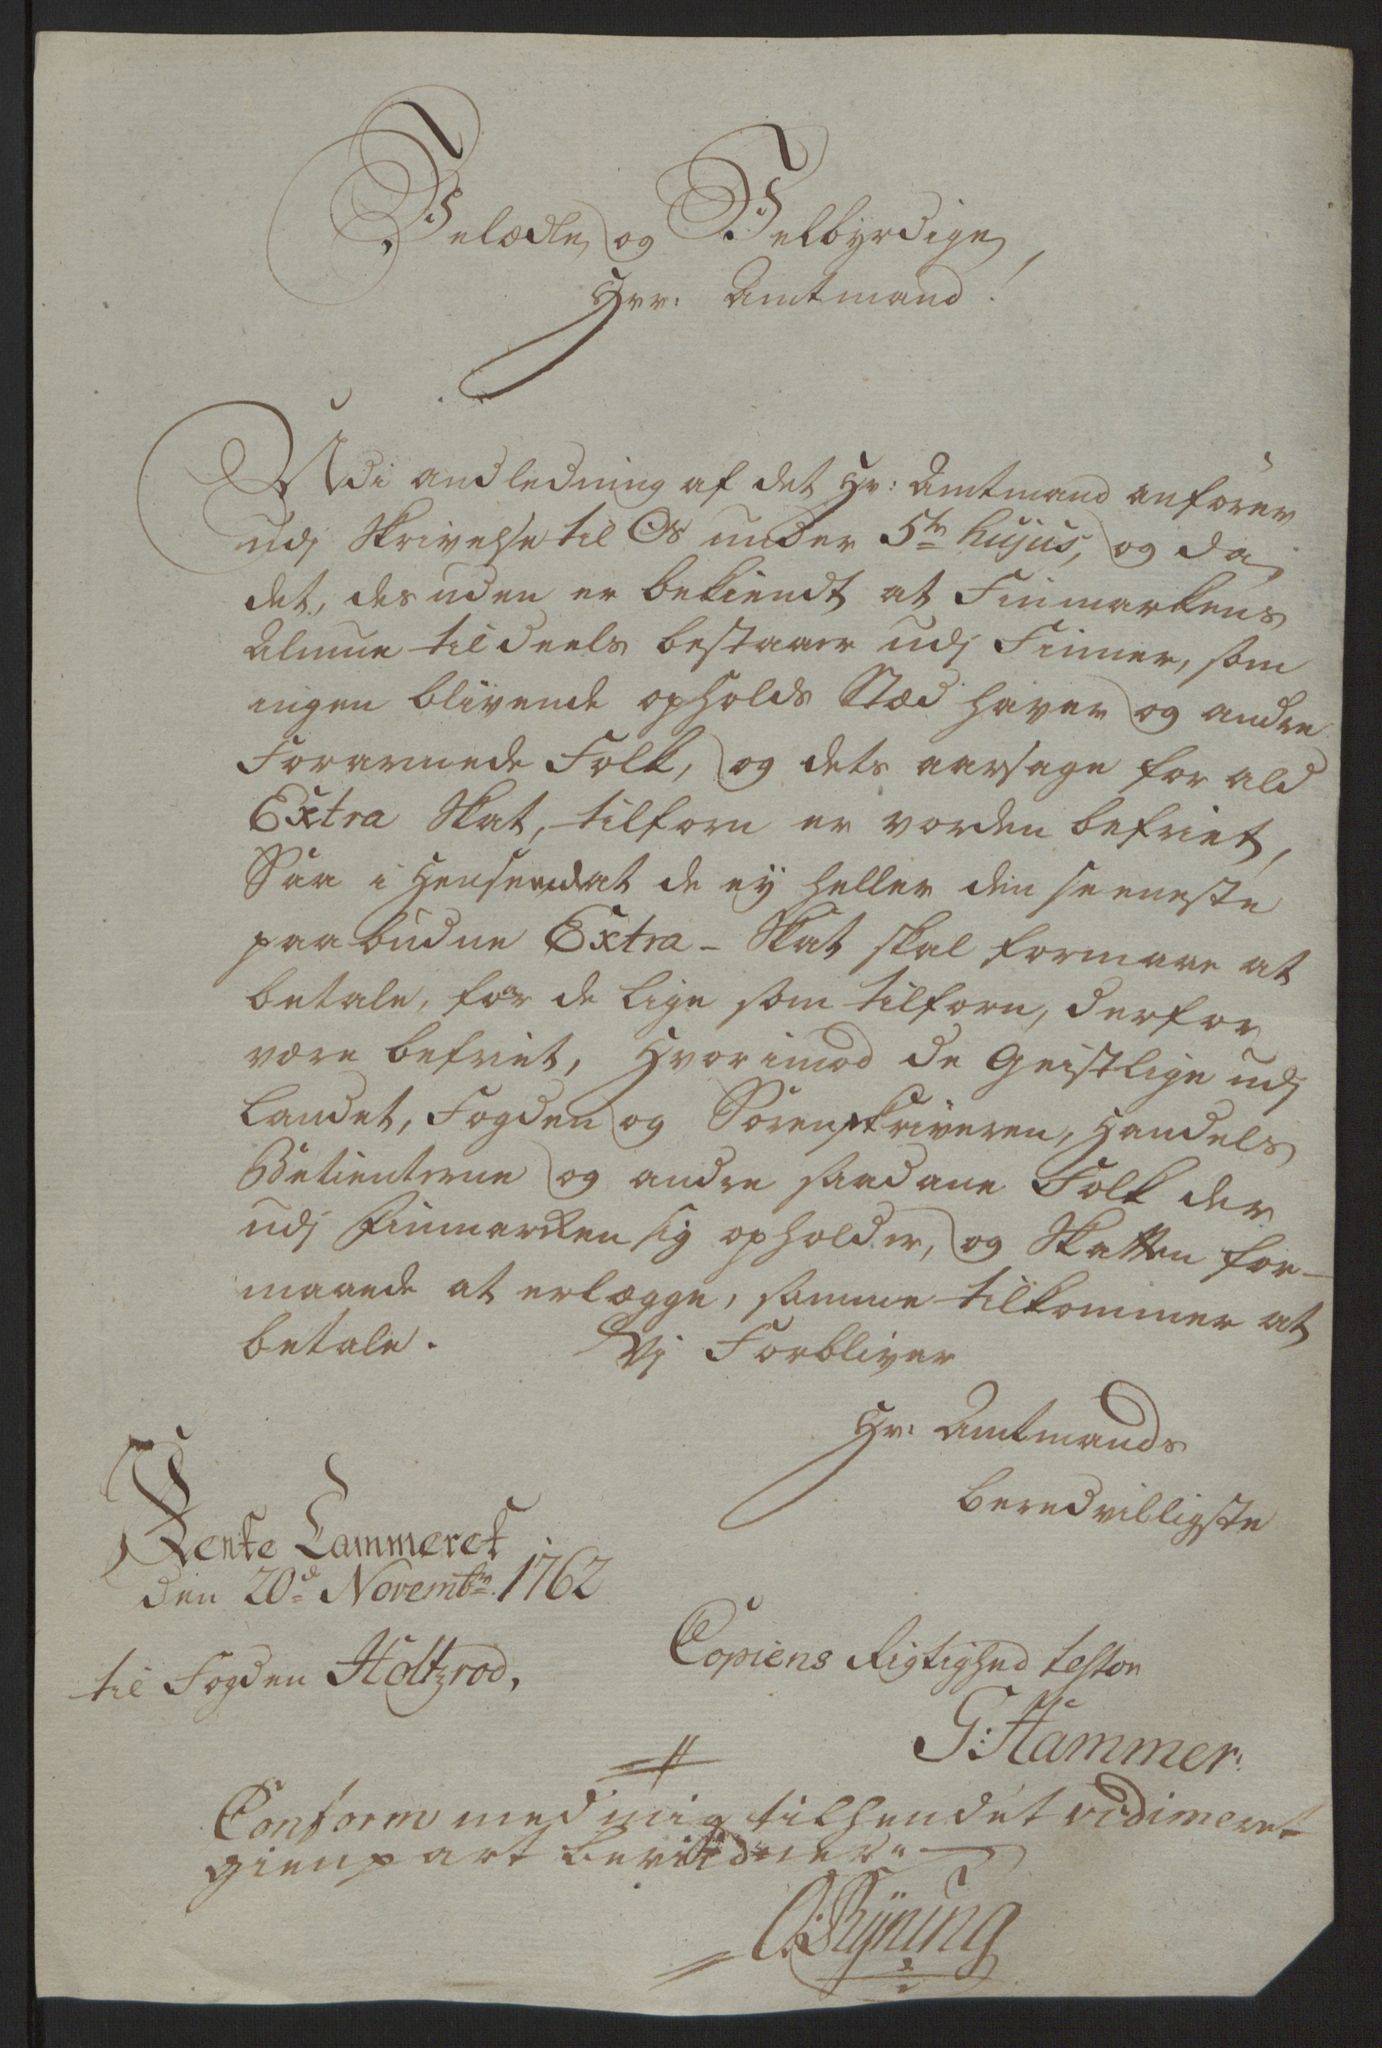 Velædle og Velbyrdige,
Herr: Amtmand!
Udi andledning af det Hr: Amtmand anfører
udj Skrivelse til Os under 5te hujus, og da
det, desuden er bekiendt at Finmarkens
Almue tildeels bestaaer udj Finner, som
ingen blivende opholds Stæd haver og andre
Forarmede Folk, og dets aarsage for ald
Extra Skat, tilforn er vorden befriet,
Saa i Henseend at de ey heller den seeneste
paabudne Extra-Skat skal formaae at
betale, for de lige som tilforn, derfor
være befriet, Hvorimod de Geistlige udj
Landet, Fogden og Sorenskriveren, Handels
Betienterne og andre saadane Folk der
udj Finmarken sig opholder, og Skatten for-
maaede at erlægge, samme tilkommer at
betale. Vj Forbliver
Hr: Amtmands
beredvilligste
Rente Cammeret
den 20d Novembr. 1762
til Fogden Holtzrod,
Copiens Rigtighed tester
G: Hammer:
Conform med mig tilhendet vidimeret
gienpart bevidner
O: Ryning